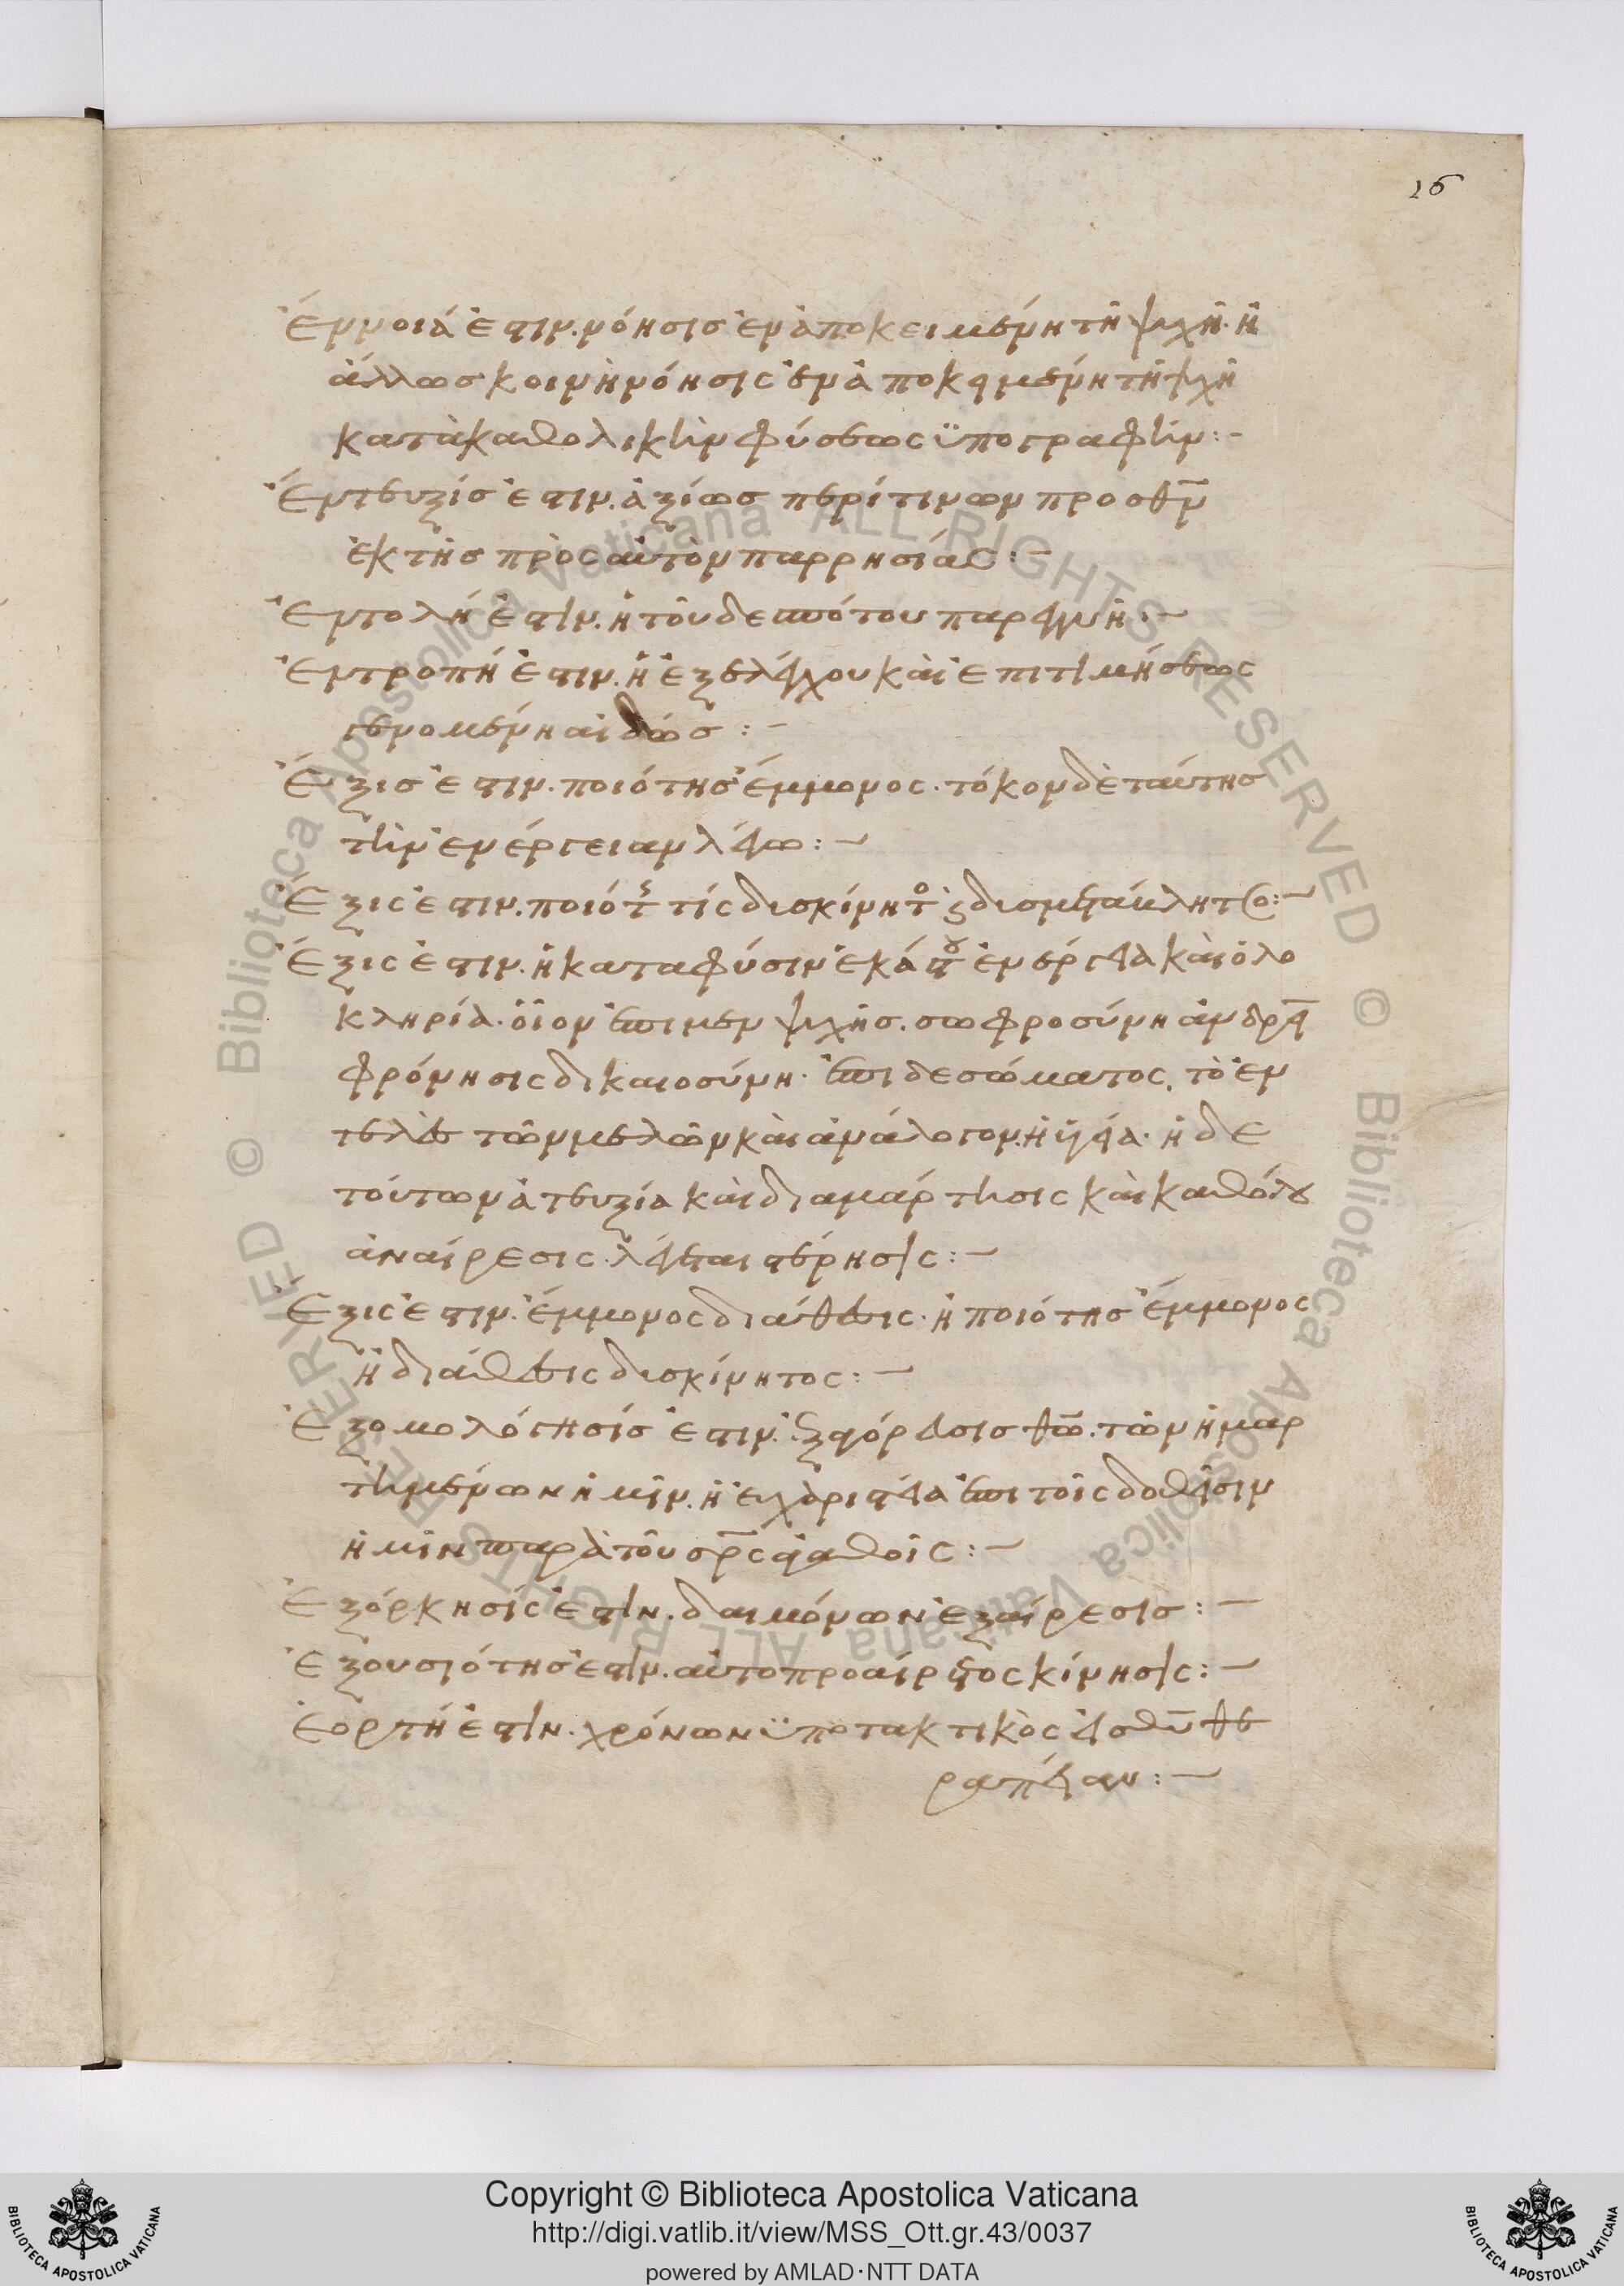 16
Ἔννοιά ἐστιν. νόησις ἐναποκειμένη τῆ ψυχῆ. ἢ
ἄλλως κοινὴ νόησις ἐναποκειμένη τῆ ψυχῆ
κατὰ καθολικὴν φύσεως ὑπογραφήν:-
Ἔντευξίς ἐστιν. ἀξίωσις περί τινων πρὸς θν̅
ἐκ τῆς πρὸς αὐτὸν παρρησίας:-
Ἐντολή ἐστιν. ἡ τοῦ δεσπότου παραγγελή:-
Ἐντροπή ἐστιν. ἡ ἐξ ἐλέγχου καὶ ἐπιτιμήσεως
γενομένη αἰδώς:-
Ἕξις ἐστιν. ποιότης ἔμμονος. τόκον δὲ ταύτης
τὴν ἐνέργειαν λέγω:-
Ἕξις ἐστιν. ποιότης τίς δυσκίνητος ἢ δυσμετάκλητος:-
Ἕξις ἐστιν. ἡ κατα φύσιν ἑκάστου ἐνέργεια καὶ ὁλο
κληρία. οἷον ἐπι μεν ψυχῆς. σωφροσύνη ἀνδρεία
φρόνησις δικαιοσύνη. ἐπι δε σώματος, τὸ ἐν
τελὲς τῶν μελῶν καὶ ἀνάλογον. ἡ ὑγεία. ἡ δε
τούτων ἀτευξία καὶ διαμάρτησις καὶ καθόλου
ἀναίρεσις. λέγεται στέρησις:-
Ἕξις ἐστιν. ἔμμονος διάθεσις. ἢ ποιότης ἔμμονος
ἢ διάθεσις δυσκίνητος:-
Ἐξομολόγησίς ἐστιν. ἐξαγόρευσις θω̅. τῶν ἡμαρ
τημένων ἡμῖν. ἢ εὐχαριστεία ἐπι τοῖς δοθεῖσιν
ἡμῖν παρὰ τοῦ πρ̅ς ἀγαθοῖς:-
Ἐξόρκησίς ἐστιν. δαιμόνων ἐξαίρεσις:-
Ἐξουσιότης ἐστιν. αὐτοπροαίρετος κίνησις:-
Ἑορτή ἐστιν. χρόνων ὑποτακτικὸς εἰς θυ̅ θε
ραπείαν:-
Copyright © Biblioteca Apostolica Vaticana
http://digi.vatlib.it/view/MSS_Ott.gr.43/0037
powered by AMLAD·NTT DATA